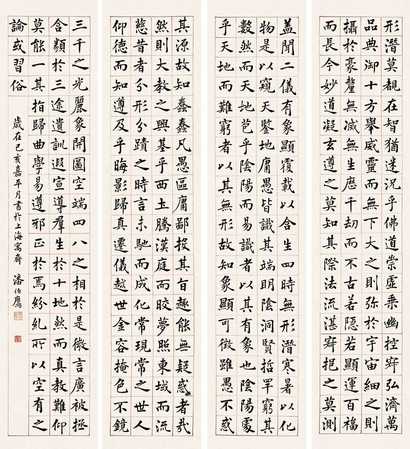 蓋聞二儀有象顯覆載以含生四時無形潛寒暑以化
物是以窺天鑒地庸愚皆識其端明陰洞陽賢哲罕窮其
數然而天地苞乎陰陽而易識者以其有象也陰陽處
乎天地而難窮者以其無形也故知象顯可徵雖愚不惑
形潛莫覩在智猶迷況乎佛道崇虛乘幽控寂弘濟萬
品典御十方舉威靈而無上抑神力而無下大之則弥於宇宙細之則
攝於豪釐無滅無生歷千劫而不古若隱若顯運百福
而長今妙道凝玄遵之莫知其際法流湛寂挹之莫測
其源故知蠢蠢凡愚區區庸鄙投其旨趣能無疑惑者哉
然則大教之興基乎西土騰漢庭而皎夢照東域而流
慈昔者分形分跡之時言未馳而成化當常現常之世人
仰德而知遵及乎晦影歸真遷儀越世金容掩色不鏡
三千之光麗象開圖空端四八之相於是微言廣被拯
含類於三途遺訓遐宣導羣生於十地然而真教難仰
莫能一其指歸曲學易遵邪正於焉紛糺所以空有之
論或習俗
歲在己亥嘉平月書於上海寓齋 潘伯鷹